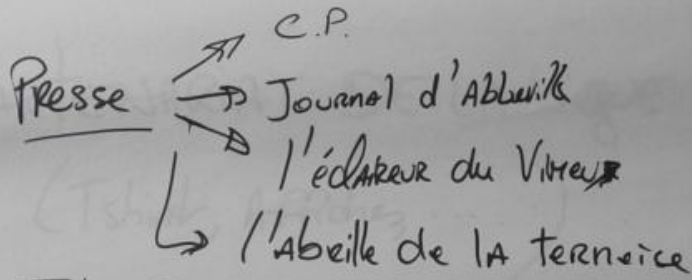 C.P.
Presse
Journal d'Abbeville
l'éclaireur du Vimeu
l'Abeille de la terneice
(Tshirt,